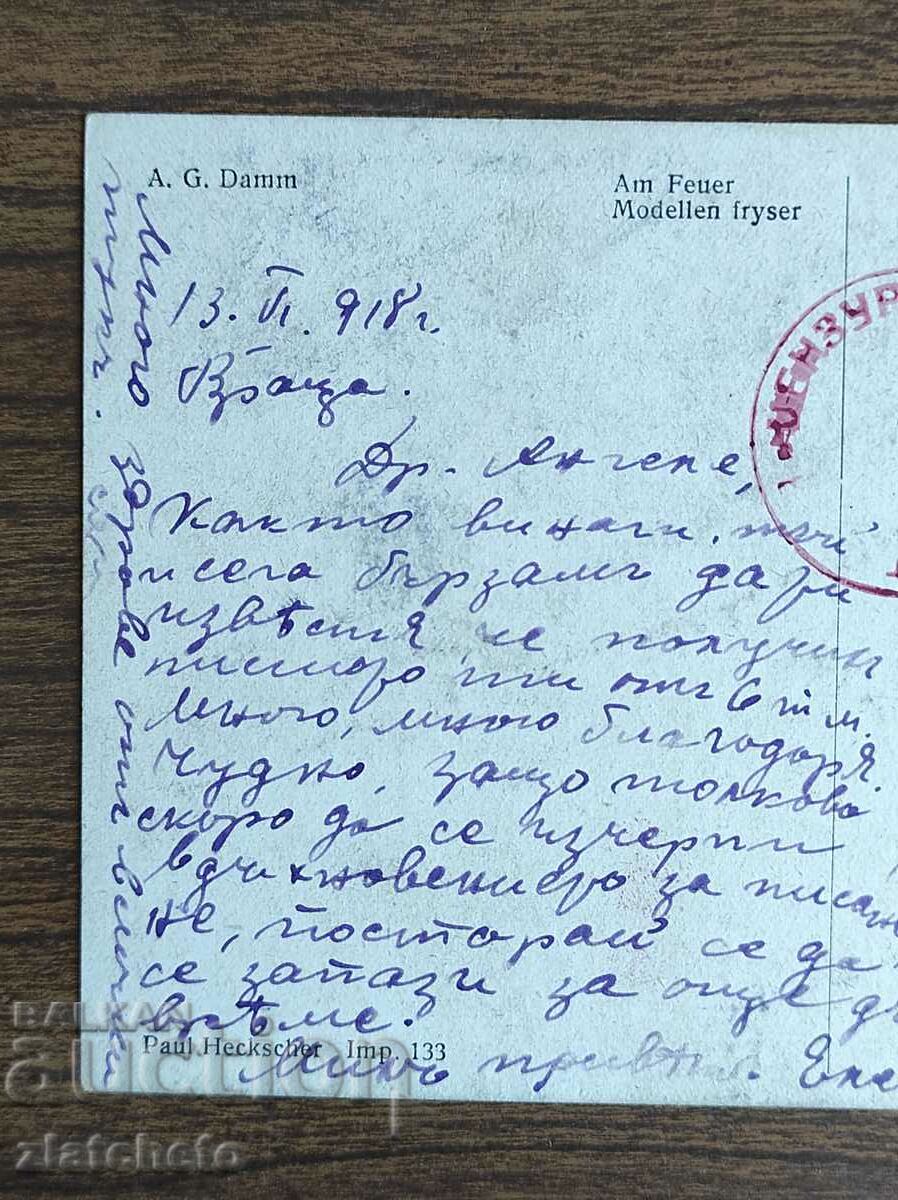 A. G. Damm
Am Feuer
Modellen fryser
13. VI. 918 г.
Враца.
Др. Ангеле,
Както винаги, тъй
и сега бързамъ да ти
извѣстя, че получих
писмото ти отъ 6 т. м.
Много, много благодаря.
Чудно, защо толкова
скоро да се изчерпи
вдъхновението за писан
не, постарай се да
се запази за още
врѣме.
поздрави. Ек
Много здраве отъ всички
ЦЕНЗУР
Paul Heckscher Imp. 133
BALKAN
auction
zlatcheto